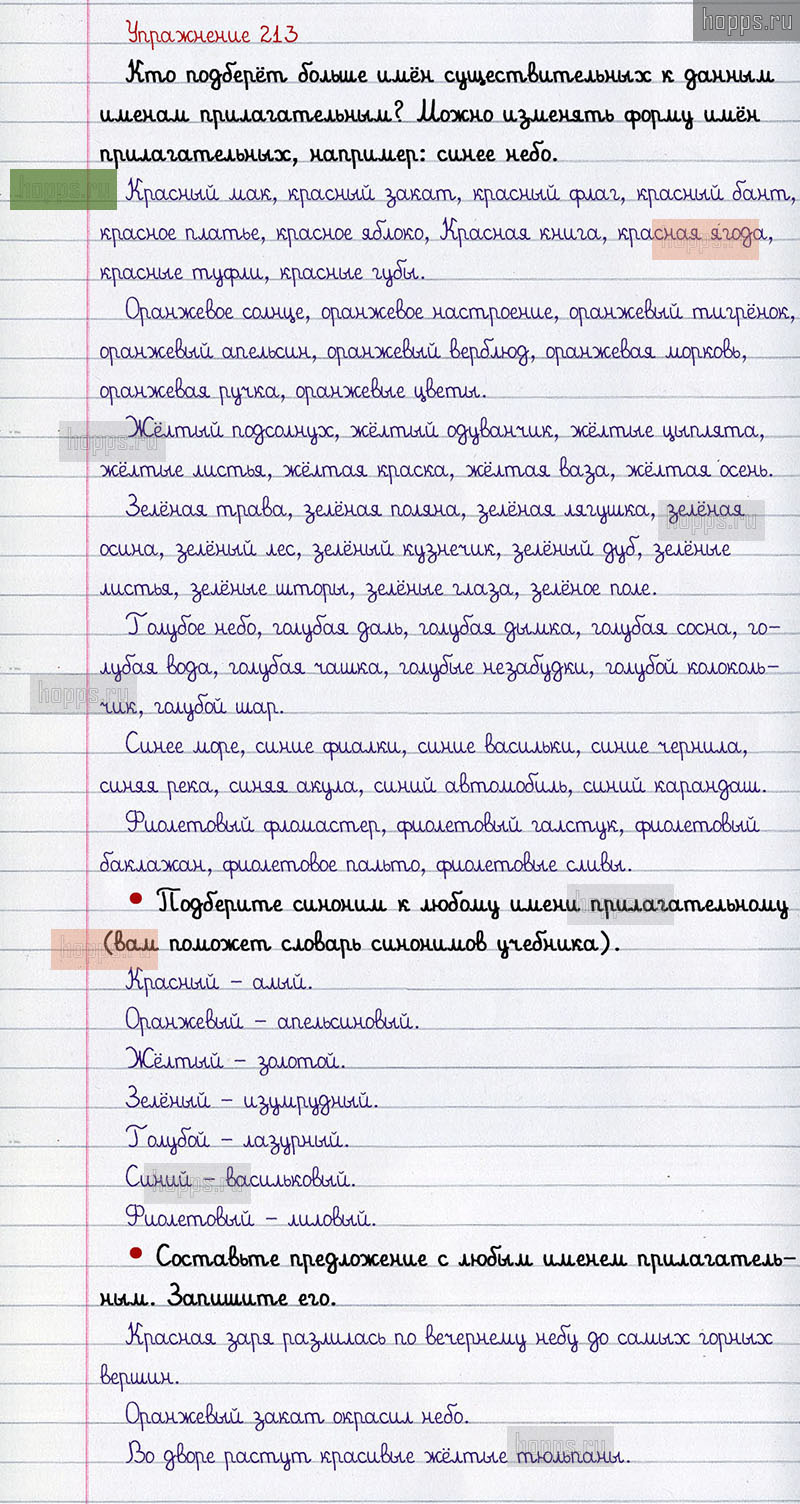 hopps.ru
Упражнение 213
Кто подберёт больше имён существительных к данным
именам прилагательным? Можно изменять форму имён
прилагательных, например: синее небо.
hopps.ru
Красный мак, красный закат, красный флаг, красный бант,
красное платье, красное яблоко, Красная книга, красная ягода,
hopps.ru
красные туфли, красные губы.
Оранжевое солнце, оранжевое настроение, оранжевый тигрёнок,
оранжевый апельсин, оранжевый верблюд, оранжевая морковь,
оранжевая ручка, оранжевые цветы.
hopps.ru
Жёлтый подсолнух, жёлтый одуванчик, жёлтые цыплята,
жёлтые листья, жёлтая краска, жёлтая ваза, жёлтая осень.
Зелёная трава, зелёная поляна, зелёная лягушка, зелёная
hopps.ru
осина, зелёный лес, зелёный кузнечик, зелёный дуб, зелёные
листья, зелёные шторы, зелёные глаза, зелёное поле.
Голубое небо, голубая даль, голубая дымка, голубая сосна, го-
лубая вода, голубая чашка, голубые незабудки, голубой колоколь-
hopps.ru
чик, голубой шар.
Синее море, синие фиалки, синие васильки, синие чернила,
синяя река, синяя акула, синий автомобиль, синий карандаш.
Фиолетовый фломастер, фиолетовый галстук, фиолетовый
баклажан, фиолетовое пальто, фиолетовые сливы.
• Подберите синоним к любому имени прилагательному
hopps.ru
(вам поможет словарь синонимов учебника).
hopps.ru
Красный – алый.
Оранжевый – апельсиновый.
Жёлтый – золотой.
Зелёный – изумрудный.
Голубой – лазурный.
Синий – васильковый.
hopps.ru
Фиолетовый – лиловый.
• Составьте предложение с любым именем прилагатель-
ным. Запишите его.
Красная заря разлилась по вечернему небу до самых горных
вершин.
Оранжевый закат окрасил небо.
Во дворе растут красивые жёлтые тюльпаны.
hopps.ru